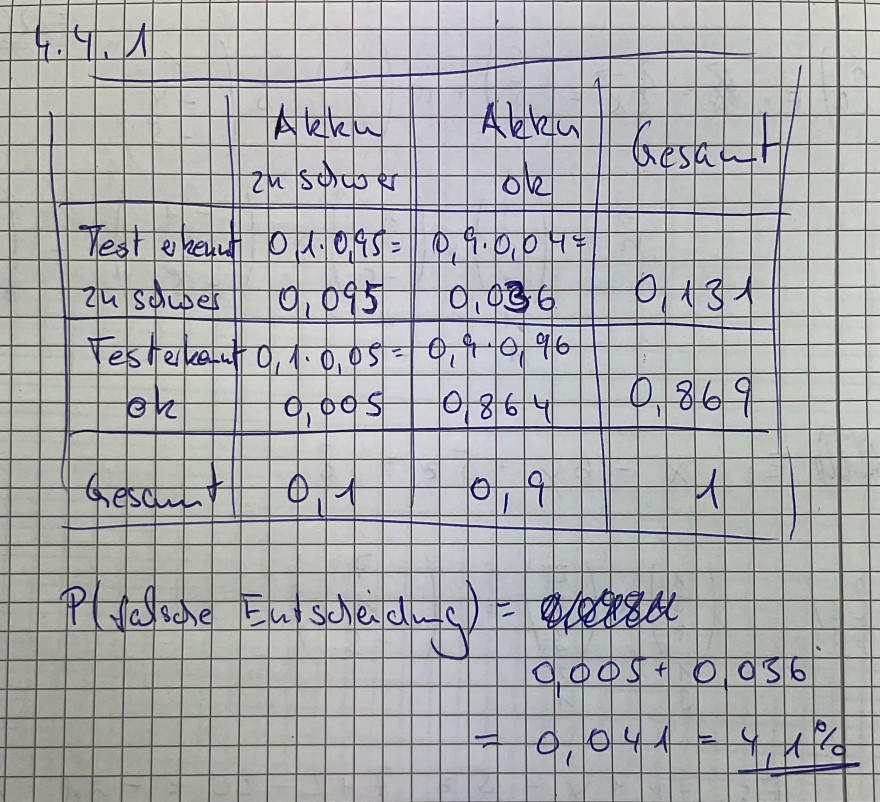 4.4.1
Akku Akku Gesamt
zu schwer ok
Test erkennt 0,1·0,95= 0,9·0,04=
zu schwer 0,095 0,036 0,131
Test erkennt 0,1·0,05= 0,9·0,96
ok 0,005 0,864 0,869
Gesamt 0,1 0,9 1
P(falsche Entscheidung) =
0,005 + 0,036
= 0,041 = 4,1%